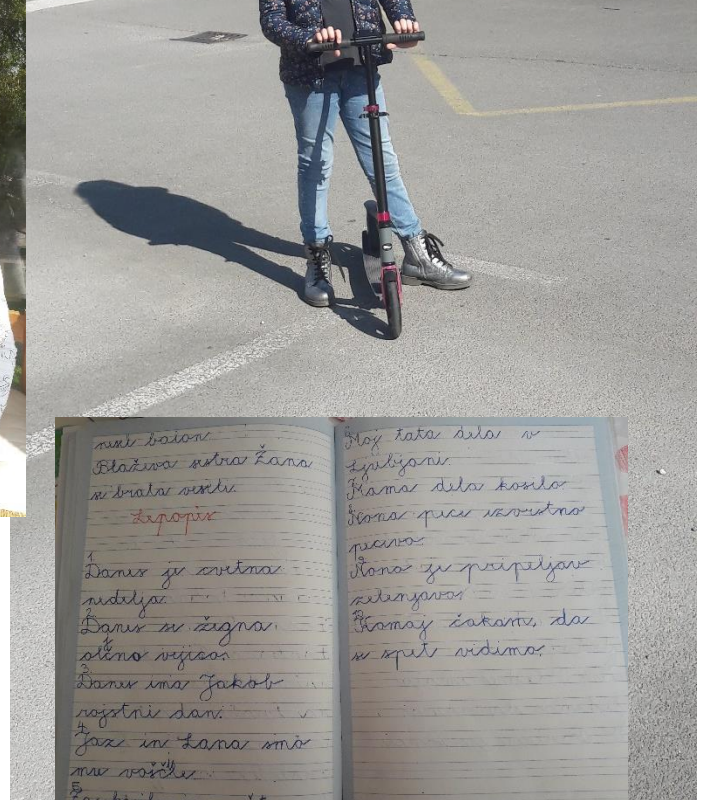 balon
Blaževa sestra Žana
se brata veseli.
Lepopis
1
Danes je cvetna
nedelja.
2
Danes se žegna
olčno vejico.
3
Danes ima Jakob
rojstni dan.
4
Jaz in Lana smo
mu voščile.
5
Moj tata dela v
Ljubljani.
Mama dela kosilo
Nona peče izvrstno
pecivo.
Nono je pripeljav
zelenjavo.
Komaj čakam, da
se spet vidimo.